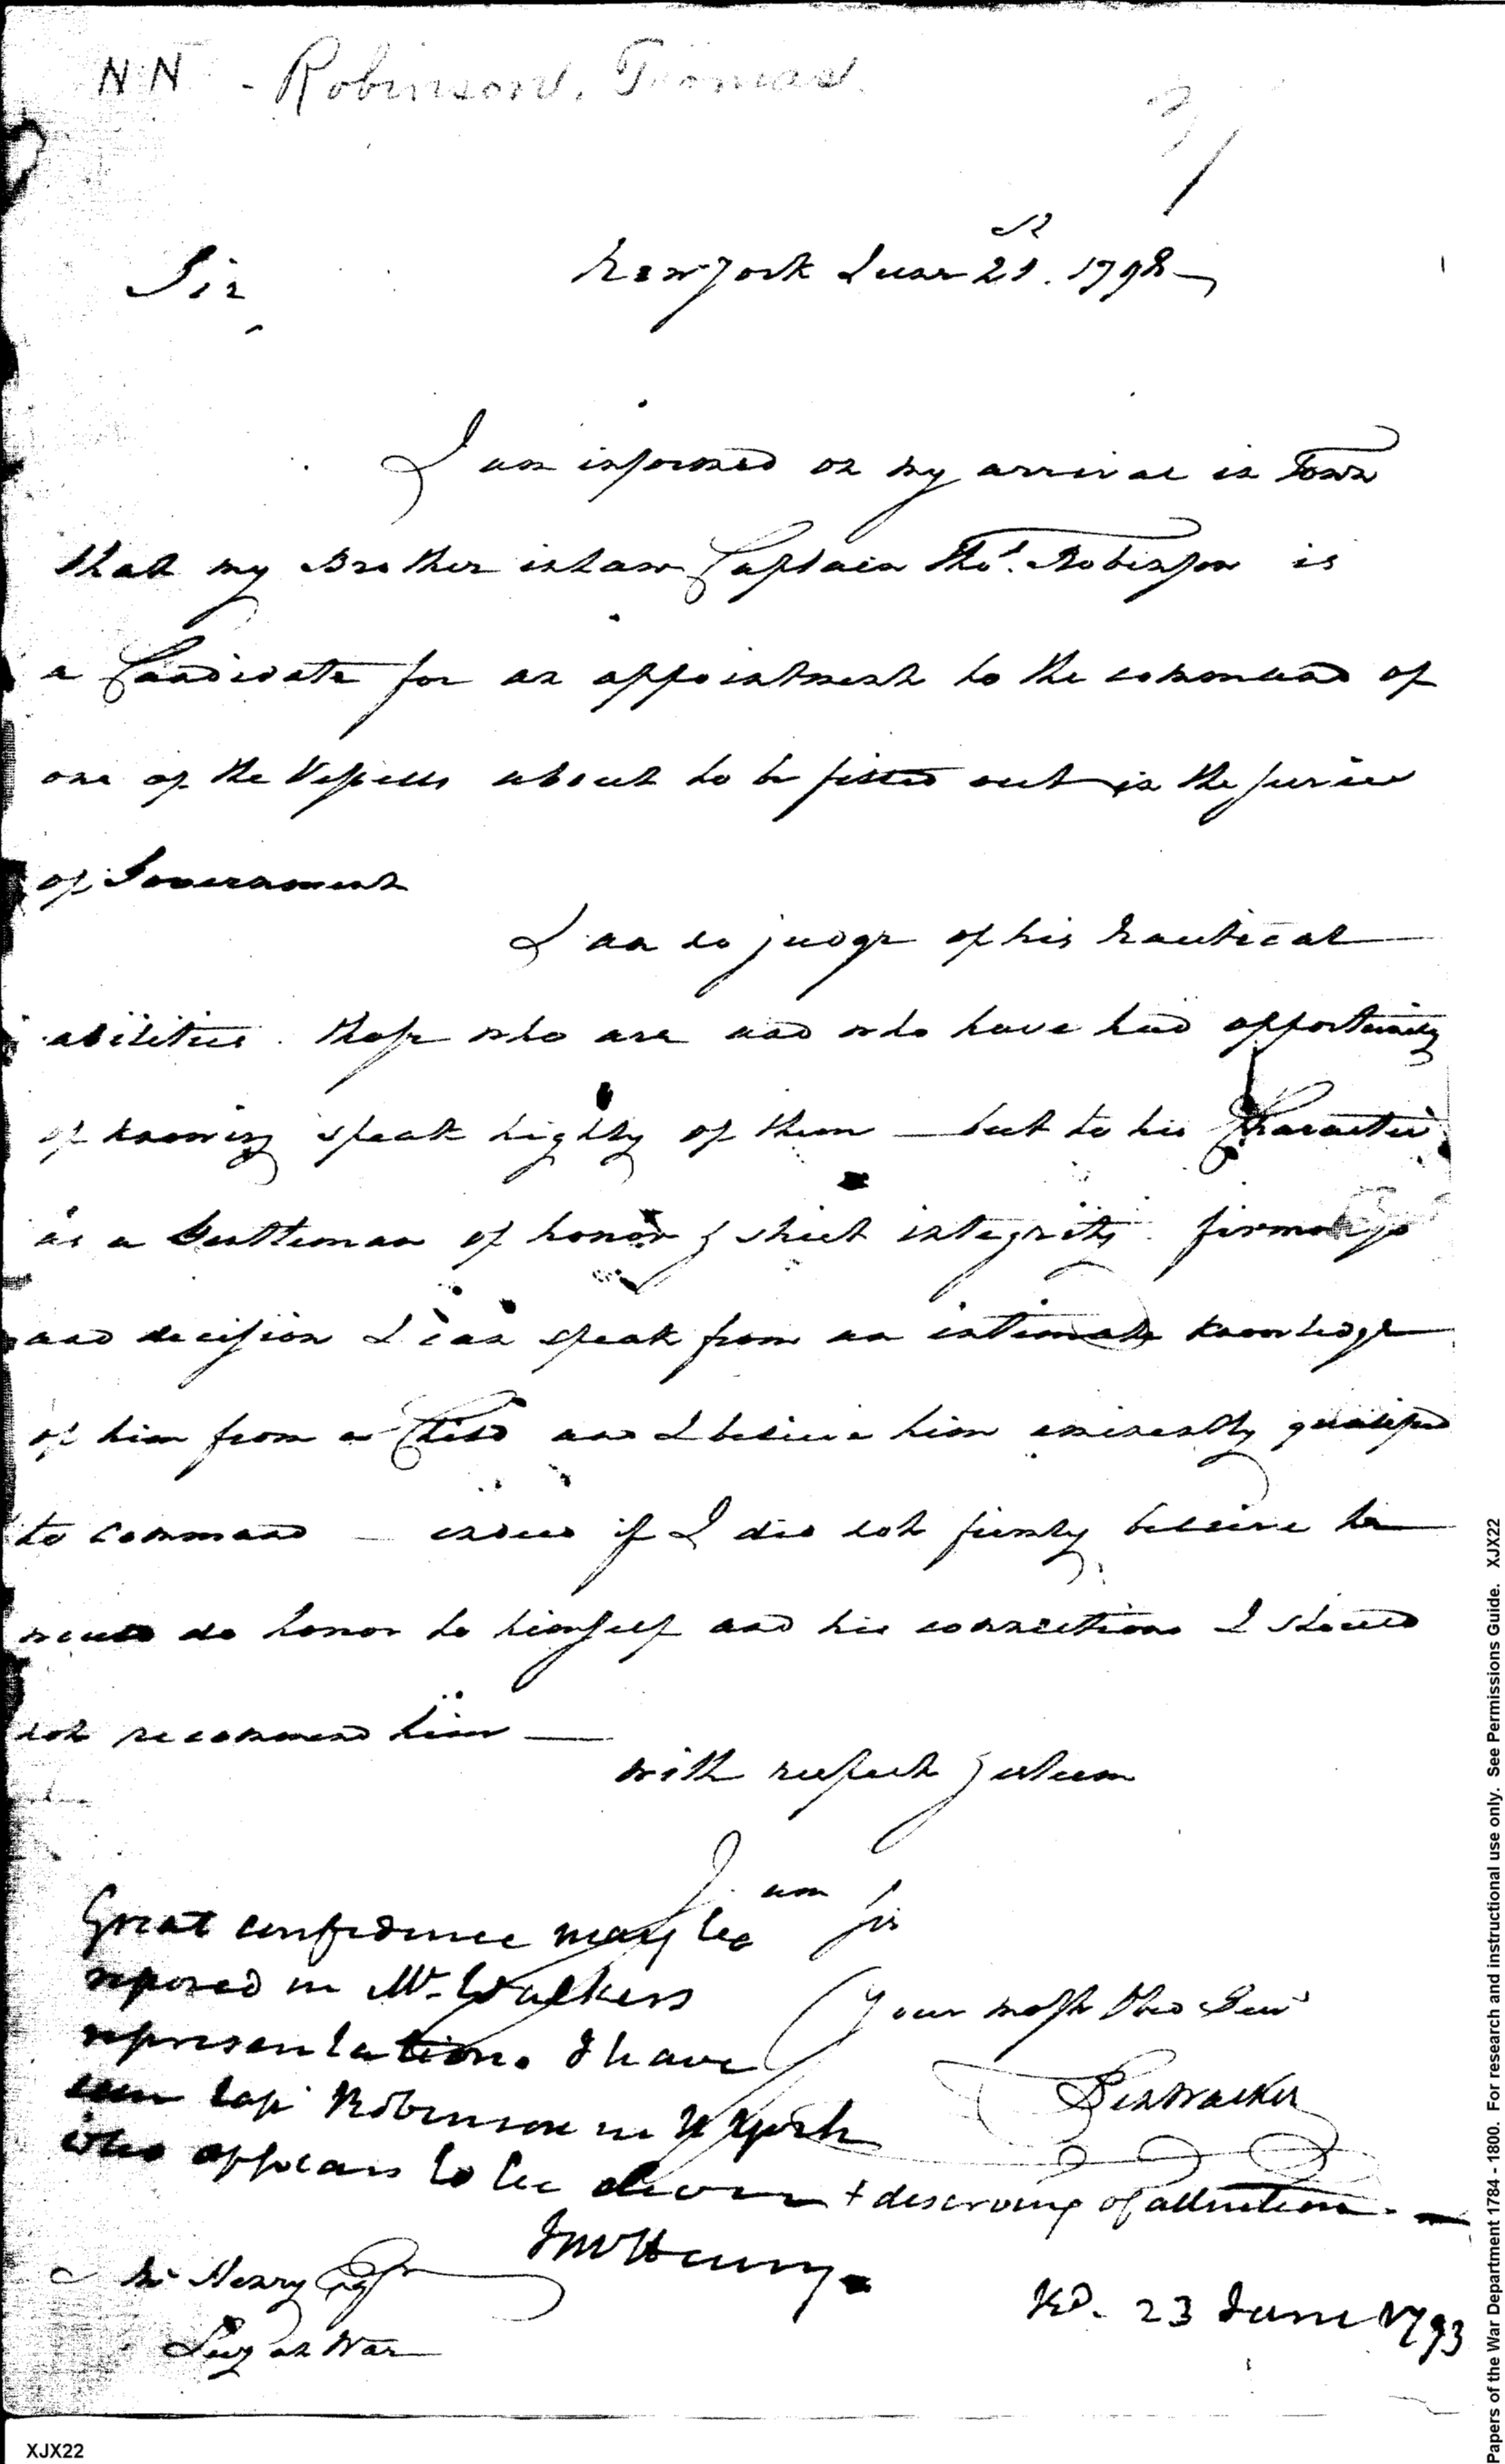 NN - Robinson, Thomas.
New York June 21st. 1798
Sir
I am informed on my arrival in Town
that my Brother in law Captain Thos. Robinson is
a Candidate for an appointment to the command of
one of the Vessells about to be fitted out in the service
of Government
I am no judge of his nautical
abilities. those who are and who have had opportunity
of knowing speak highly of them — but to his Character
as a Gentleman of honor & strict integrity. firmness
and decision I can speak from an intimate knowledge
of him from a Child and I believe him eminently qualified
to command — indeed if I did not firmly believe he
would do honor to himself and his connections I should
not recommend him —
with respect & esteem
I am Sir
Your most Obed Serv
Ben Walker
Great confidence may be
reposed in Mr. Walkers
representation. I have
seen Cap Robinson in N York
who appears to be clever + deserving of attention. —
J McHenry.
Mc Henry Esqr
Secy at War
Rd. 23 June 1793
Papers of the War Department 1784 - 1800. For research and instructional use only. See Permissions Guide. XJX22
XJX22